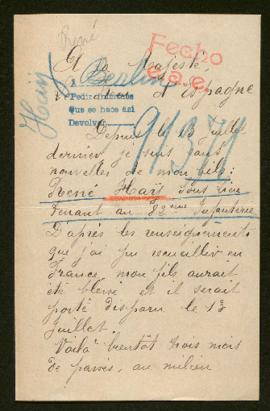 René
Fecho
A Sa Majesté
Berlin
Pedir
que se hace así
Devolver
d'Espagne
Haïy
91371
Depuis le 13 juillet
dernier je suis sans
nouvelles de mon fils:
René Haïs sous-lieu
tenant au 82ème Infanterie
D'après les renseignements
que j'ai pu recueillir en
France, mon fils aurait
été blessé et il serait
porté disparu le 13
juillet.
Voilà bientôt trois mois
de passés, au milieu